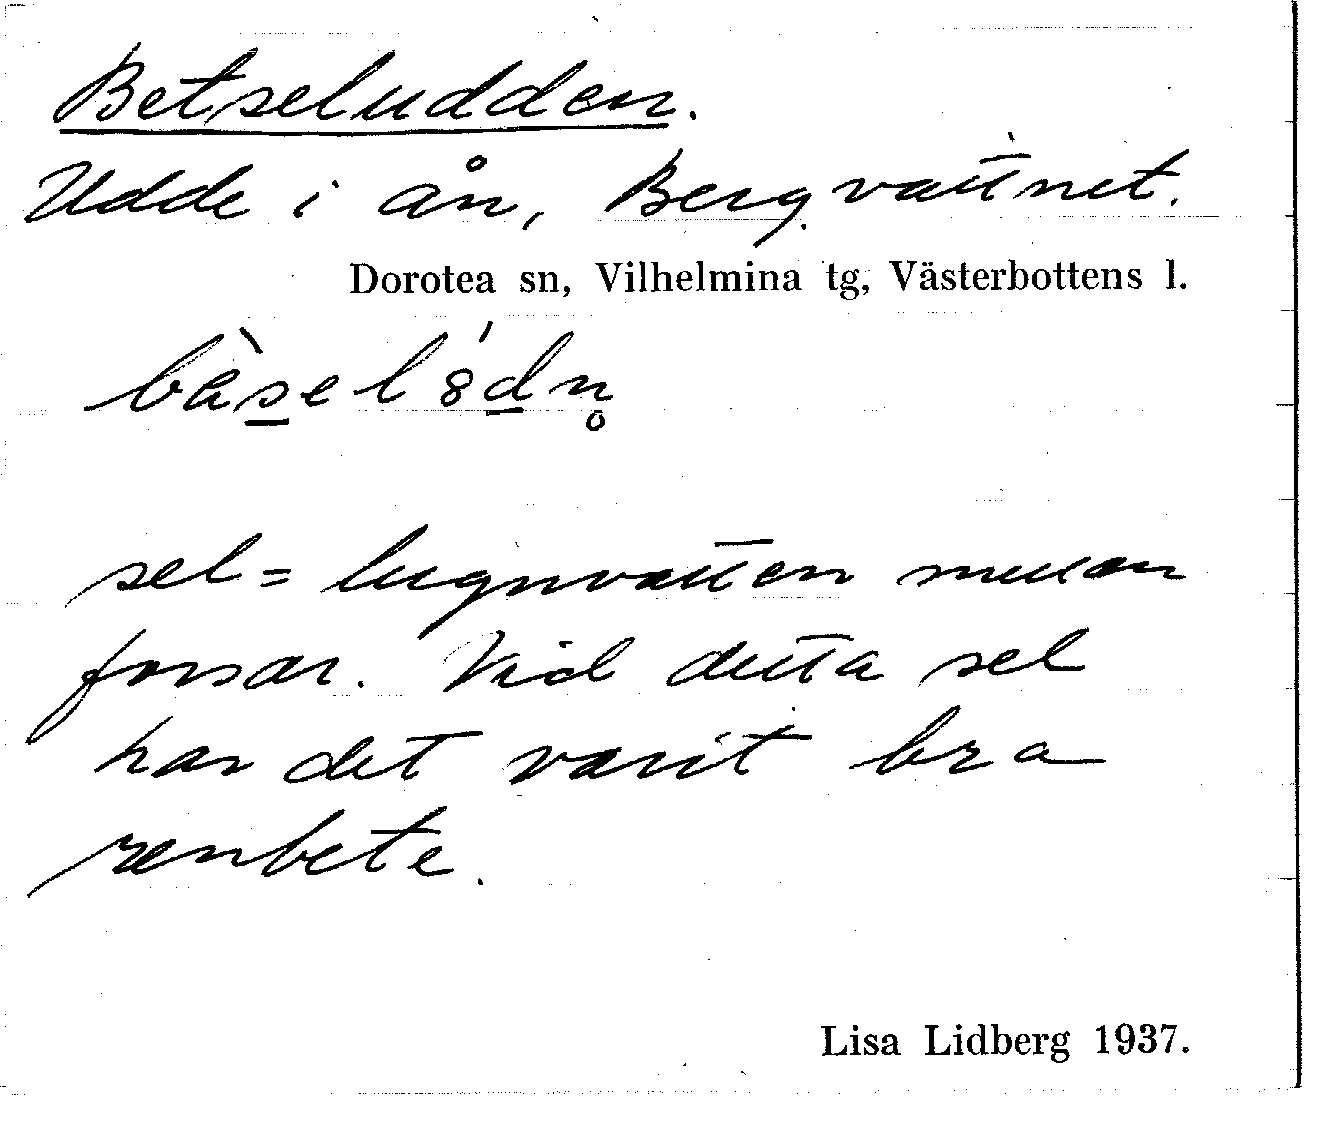 Betseludden.
Udde i ån, Bergvattnet.
Dorotea sn, Vilhelmina tg, Västerbottens l.
bèsel8́dn̥
sel = lugnvatten mellan
forsar. Vid detta sel
har det varit bra
renbete.
Lisa Lidberg 1937.